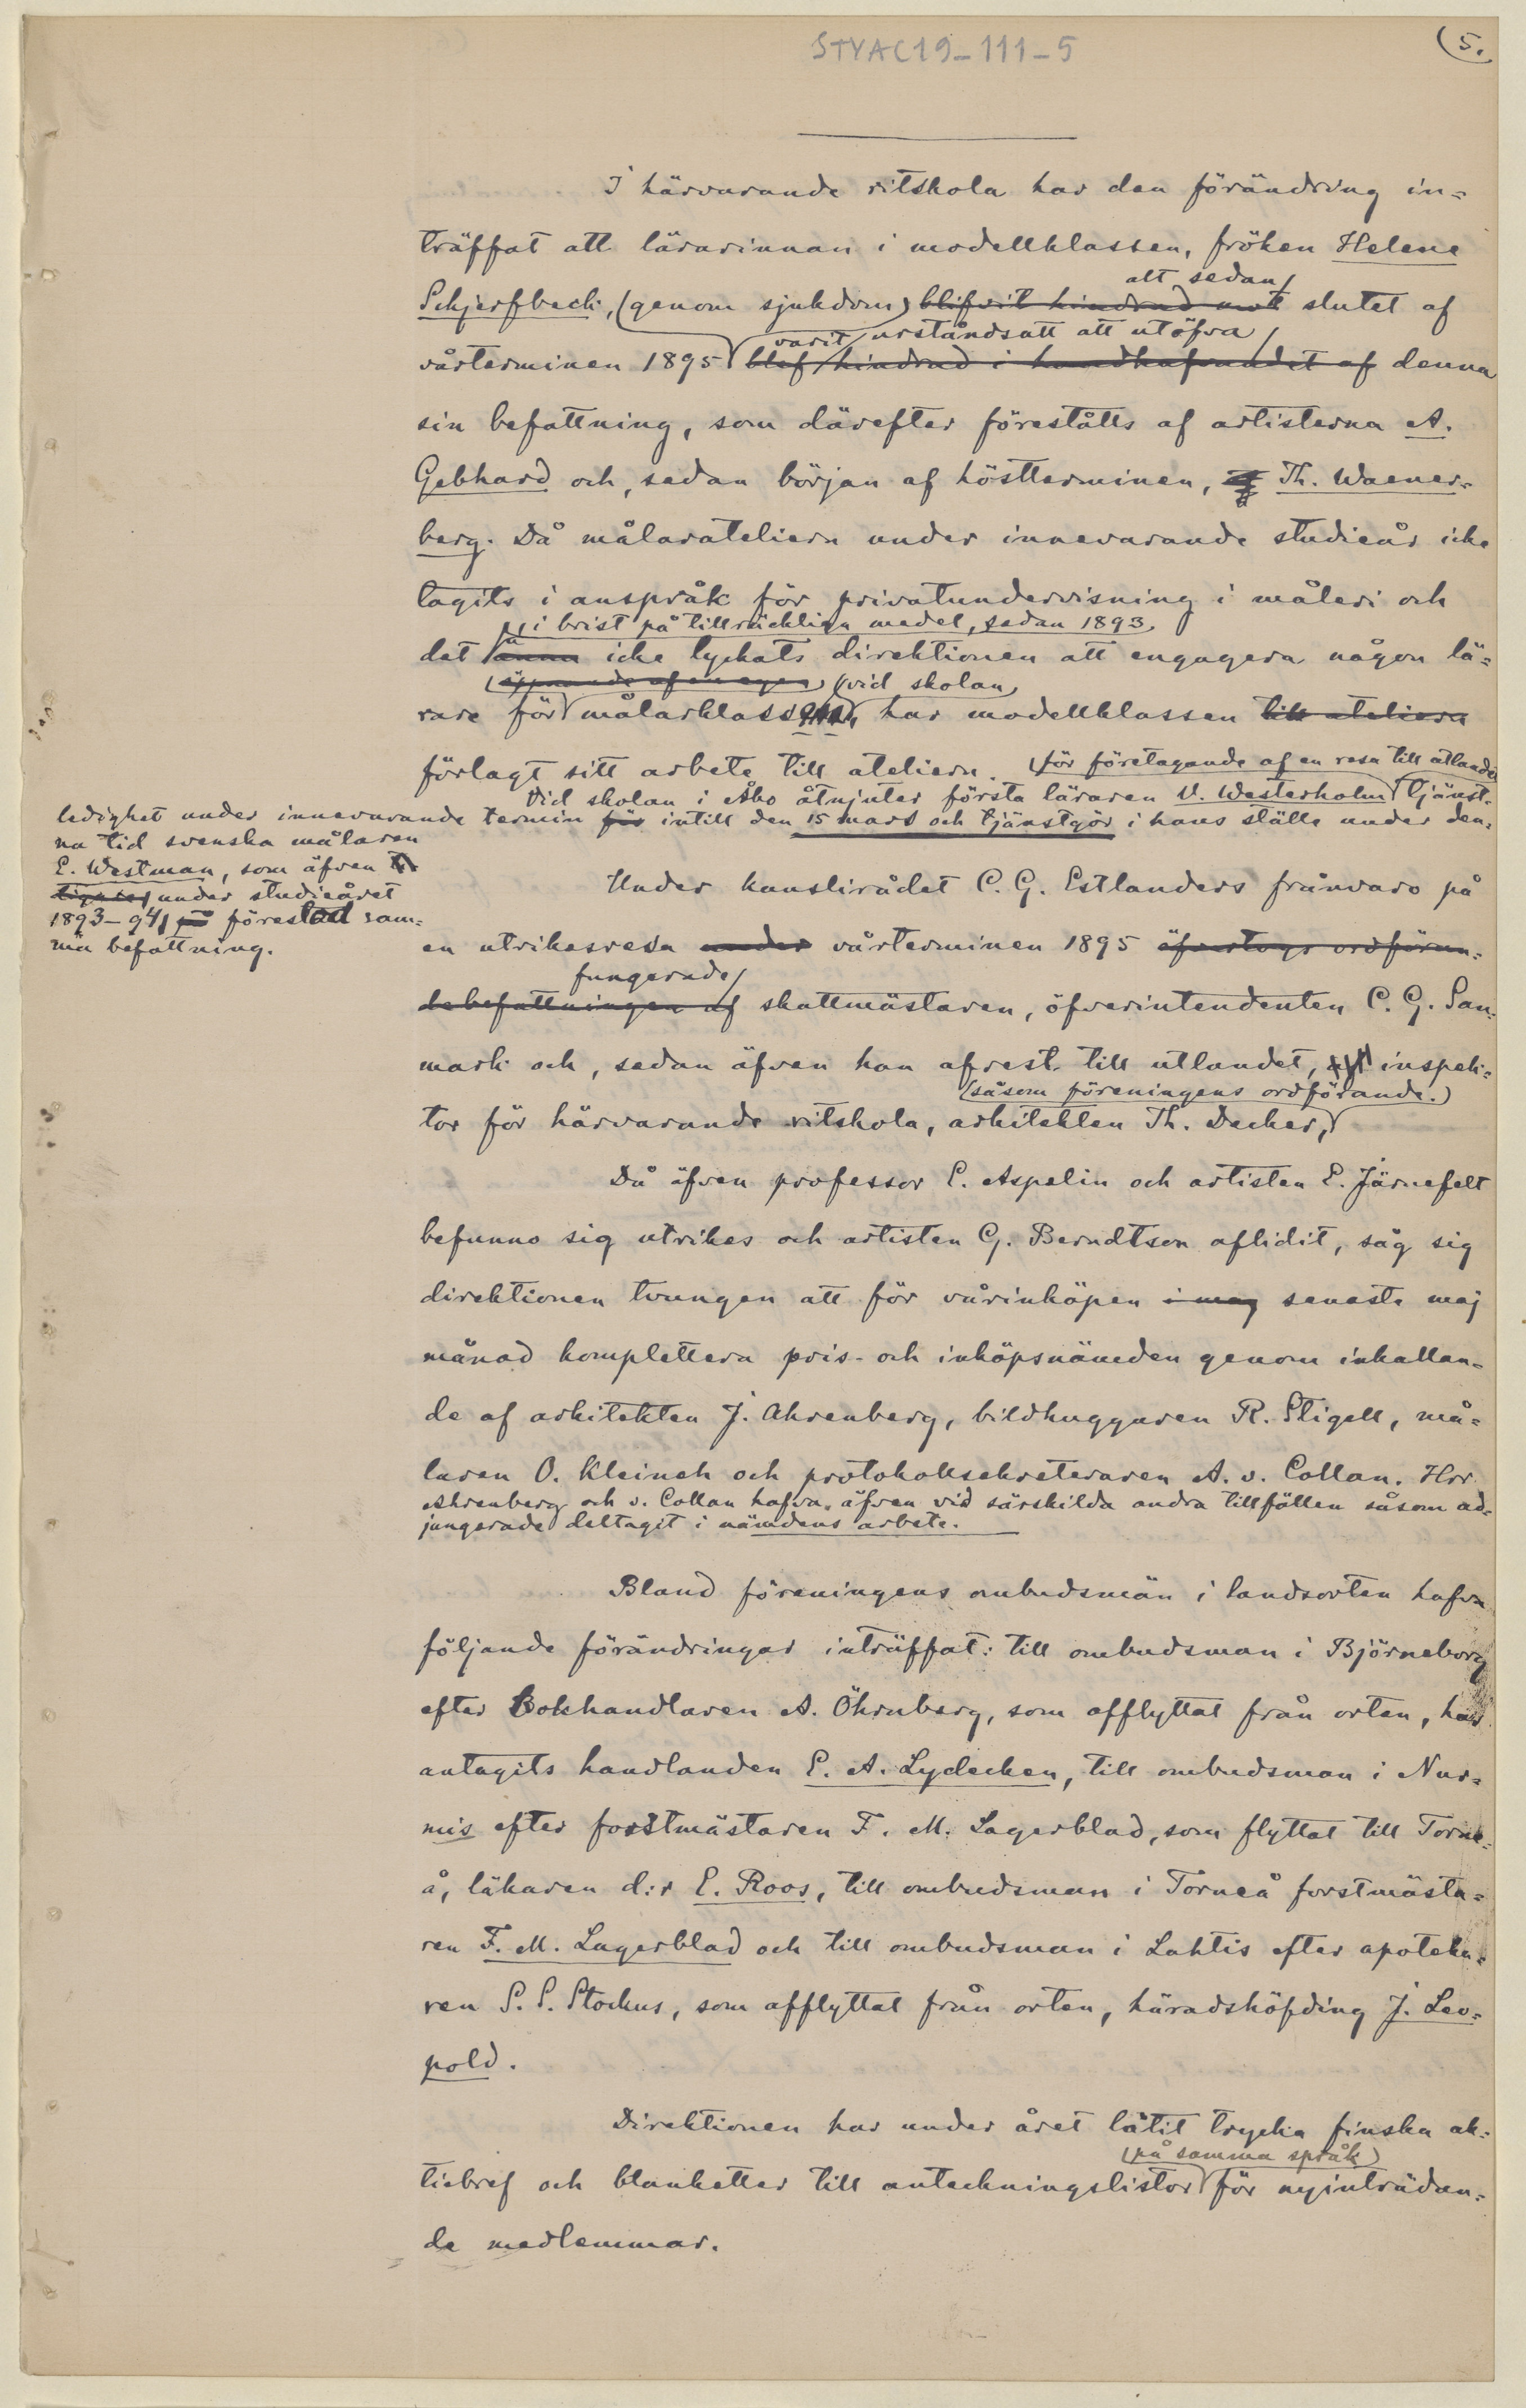 STYAC19-111-5
(5.
I härvarande ritskola har den förändring in=
träffat att lärarinnan i modellklassen, fröken Helene
alt sedan
Schjerfbeck, (genom sjukdom) blifvit hindrad mot slutet af
varit urståndsatt att utöfva
vårterminen 1895 blef hindrad i handhafvandet af denna
sin befattning, som därefter förestålts af artisterna A.
Gebhard och, sedan början af höstterminen, af Th. Waener=
berg. Då målarateliern under innevarande studieår icke
tagits i anspråk för privatundervisning i måleri och
i brist på tillräckliga medel, sedan 1893,
det icke lyckats direktionen att engagera någon lä=
(öppnande af en egen) (vid skolan)
rare för målarklassen, har modellklassen till ateliern
förlagt sitt arbete till ateliern. (för företagande af en resa till utlandet)
Vid skolan i Åbo åtnjuter första läraren V. Westerholm tjänst-
ledighet under innevarande termin för intill den 15 mars och tjänstgör i hans ställe under den=
na tid svenska målaren
E. Westman, som äfven
under studieåret
1893-94 på förestod sam=
ma befattning.
Under kanslirådet C. G. Estlanders frånvaro på
en utrikesresa under vårterminen 1895 öfvertogs ordföran=
fungerade
debefattningen af skattmästaren, öfverintendenten C. G. San=
mark och, sedan äfven han afrest till utlandet, af inspek=
(såsom föreningens ordförande.)
tor för härvarande ritskola, arkitekten Th. Decker,
Då äfven professor E. Aspelin och artisten E. Järnefelt
befunno sig utrikes och artisten G. Berndtson aflidit, såg sig
direktionen tvungen att för vårinköpen i maj senaste maj
månad komplettera pris- och inköpsnämden genom inkallan=
de af arkitekten J. Ahrenberg, bildhuggaren R. Stigell, må=
laren O. Kleineh och protokollsekreteraren A. v. Collan. Hrr
Ahrenberg och v. Collan hafva äfven vid särskilda andra tillfällen såsom ad=
jungerade deltagit i nämdens arbete.
Bland föreningens ombudsmän i landsorten hafva
följande förändringar inträffat: till ombudsman i Björneborg
efter Bokhandlaren A. Öhrnberg, som afflyttat från orten, har
antagits handlanden E. A. Lydecken, till ombudsman i Nur=
mis efter forstmästaren F. M. Lagerblad, som flyttat till Torne=
å, läkaren d:r E. Roos, till ombudsman i Torneå forstmästa=
ren F. M. Lagerblad och till ombudsman i Lahtis efter apoteka=
ren S. S. Stockus, som afflyttat från orten, häradshöfding J. Leo=
pold.
Direktionen har under året låtit trycka finska ak=
(på samma språk)
tiebref och blanketter till anteckningslistor för nyinträdan=
de medlemmar.